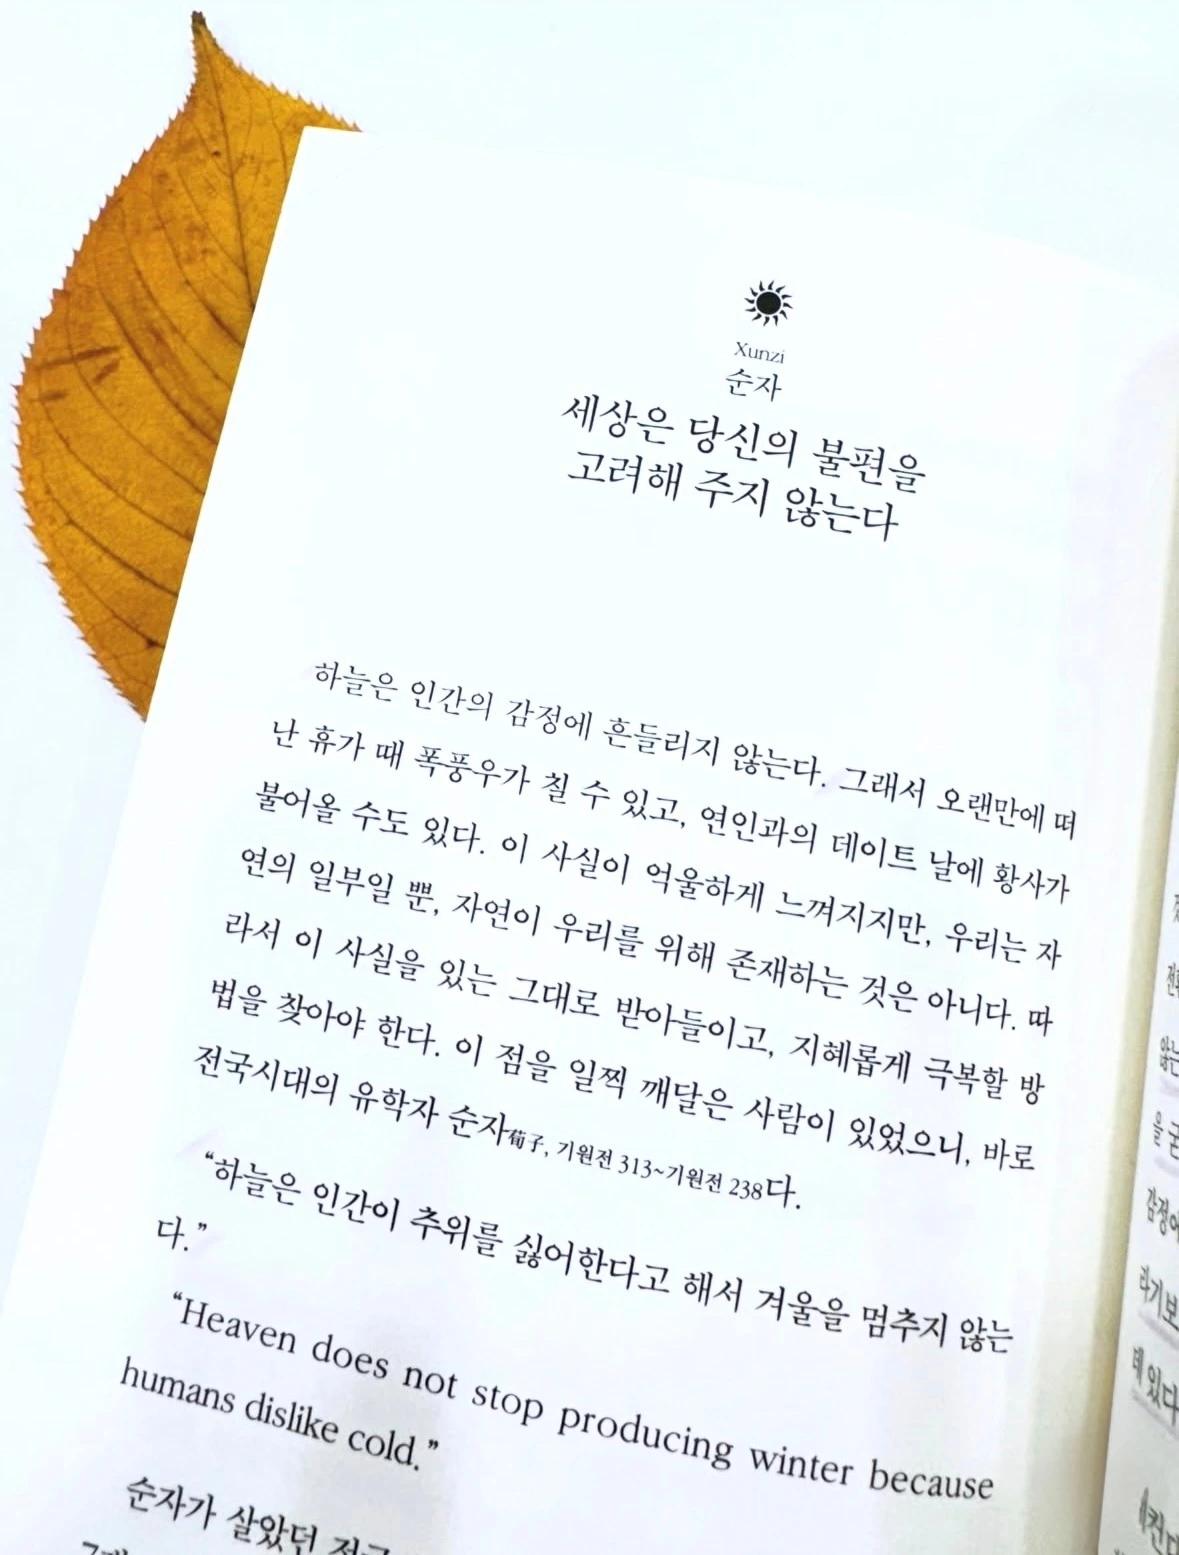 Xunzi
순자
세상은 당신의 불편을
고려해 주지 않는다
하늘은 인간의 감정에 흔들리지 않는다. 그래서 오랜만에 떠
난 휴가 때 폭풍우가 칠 수 있고, 연인과의 데이트 날에 황사가
불어올 수도 있다. 이 사실이 억울하게 느껴지지만, 우리는 자
연의 일부일 뿐, 자연이 우리를 위해 존재하는 것은 아니다. 따
라서 이 사실을 있는 그대로 받아들이고, 지혜롭게 극복할 방
법을 찾아야 한다. 이 점을 일찍 깨달은 사람이 있었으니, 바로
전국시대의 유학자 순자荀子, 기원전 313~기원전 238다.
“하늘은 인간이 추위를 싫어한다고 해서 겨울을 멈추지 않는
다.”
“Heaven does not stop producing winter because
humans dislike cold.”
순자가 살았던
을 굳
감정에
라기보
데 있다